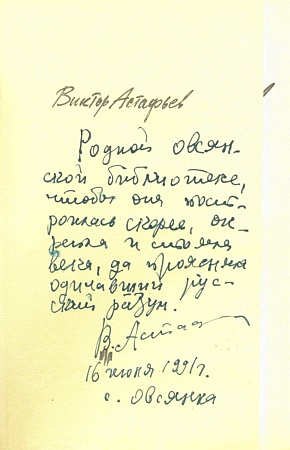 Виктор Астафьев
Родной овсян-
ской библиотеке,
чтобы она пост-
роилась скорее, ок-
репла и стояла
века, да проясняла
одичавший рус-
ский разум.
В. Астаф
16 июня 1991 г.
с. Овсянка